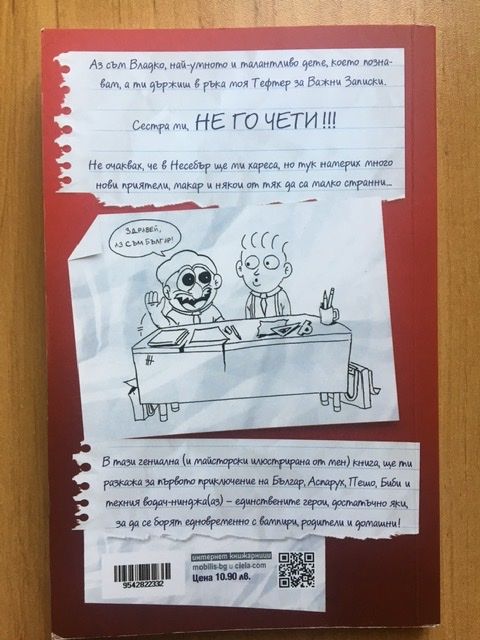 Аз съм Владко, най-умното и талантливо дете, което позна-
вам, а ти държиш в ръка моя Тефтер за Важни Записки.
Сестра ми, НЕ ГО ЧЕТИ!!!
Не очаквах, че в Несебър ще ми хареса, но тук намерих много
нови приятели, макар и някои от тях да са малко странни...
ЗДРАВЕЙ,
АЗ СЪМ БЪЛГАР!
В тази гениална (и майсторски илюстрирана от мен) книга, ще ти
разкажа за първото приключение на Българ, Аспарух, Пешо, Биби и
техния водач-нинджа(аз) – единствените герои, достатъчно яки,
за да се борят едновременно с вампири, родители и домашни!
интернет книжарници
mobilis-bg и ciela.com
Цена 10.90 лв.
9542822332